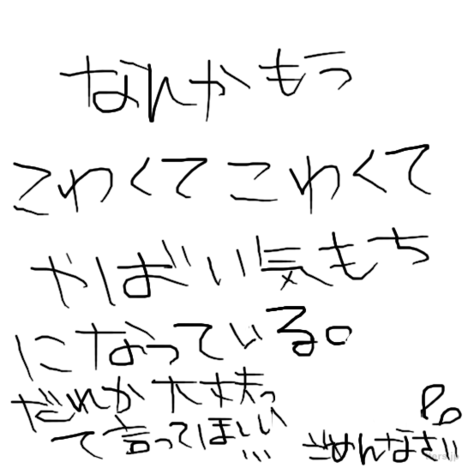 なんかもう
こわくてこわくて
やばい気もち
になっている。
だれか大丈夫っ
て言ってほしい
ごめんなさい